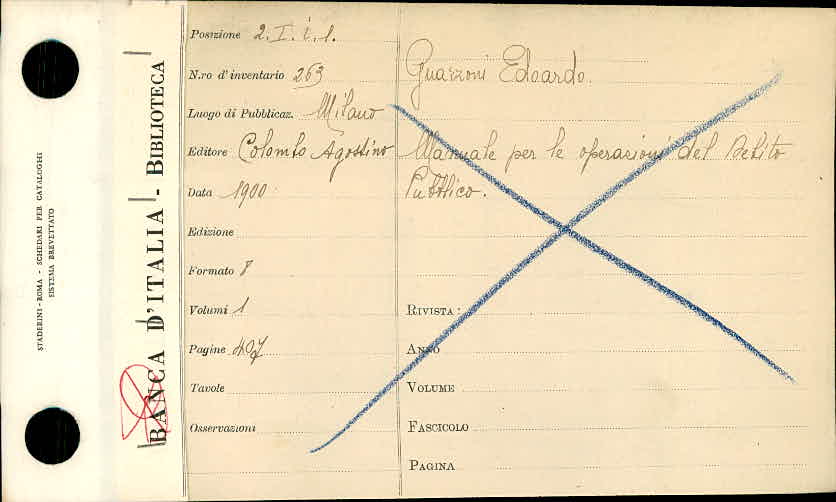 STADERINI-ROMA - SCHEDARI PER CATALOGHI
SISTEMA BREVETTATO
BANCA D'ITALIA - BIBLIOTECA
Posizione 2. I. i. 1.
N.ro d'inventario 263
Luogo di Pubblicaz. Milano
Editore Colombo Agostino
Data 1900
Edizione
Formato 8
Volumi 1
Pagine 407
Tavole
Osservazioni
Guarzoni Edoardo.
Manuale per le operazioni del Debito
Pubblico.
RIVISTA:
ANNO
VOLUME
FASCICOLO
PAGINA